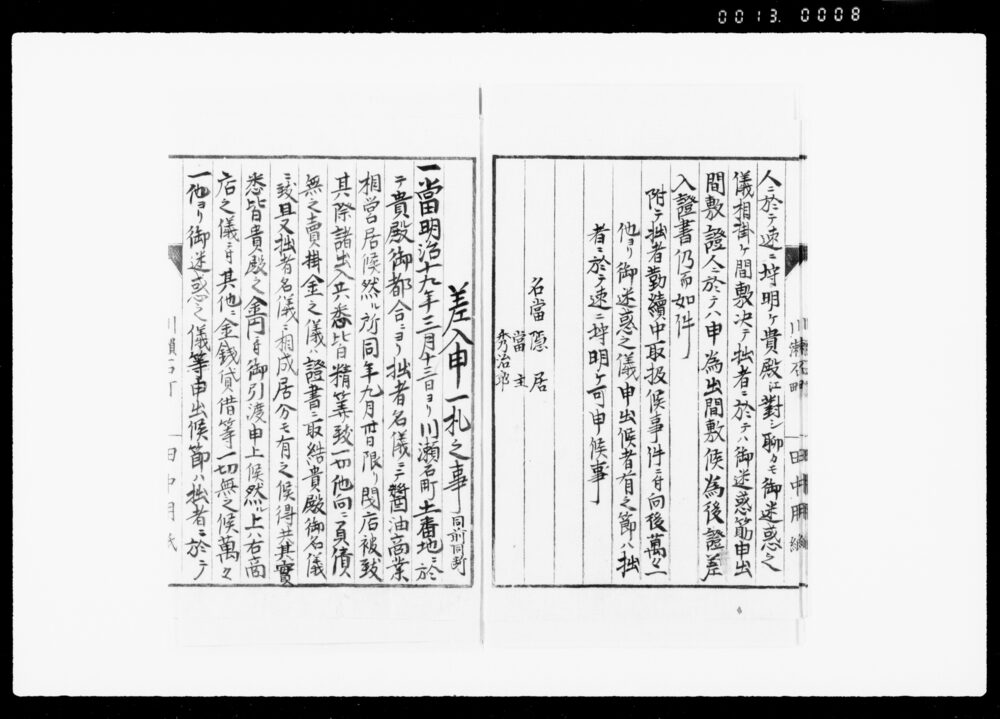 0013. 0008
人ニ於テ速ニ埓明ケ貴殿江對シ聊カモ御迷惑之
儀相掛ケ間敷決テ拙者ニ於テハ御迷惑筋申出
間敷證人ニ於テハ申為出間敷候為後證差
入證書仍而如件
附テ拙者勤續中取扱候事件ニ付向後萬々一
他ヨリ御迷惑之儀申出候者有之節ハ拙
者ニ於テ速ニ埓明ケ可申候事
名當隠居
當主
秀治郎
差入申一札之事 同前同断
一當明治十九年三月十三日ヨリ川瀬石町土番地ニ於
テ貴殿御都合ニヨリ拙者名儀ニテ醤油商業
相営居候然ル所同年九月卅日限リ閉店被致
其際諸出入共悉皆精筭致一切他向ニ負債
無之賣掛金之儀ハ證書ニ取結貴殿御名儀
ニ致且又拙者名儀ニ相成居分モ有之候得共其實
悉皆貴殿之金円ニ付御引渡申上候然ル上ハ右商
店之儀ニ付其他ニ金錢貸借等一切無之候萬々
一他ヨリ御迷惑之儀等申出候節ハ拙者ニ於テ
川瀬石町
田中用紙